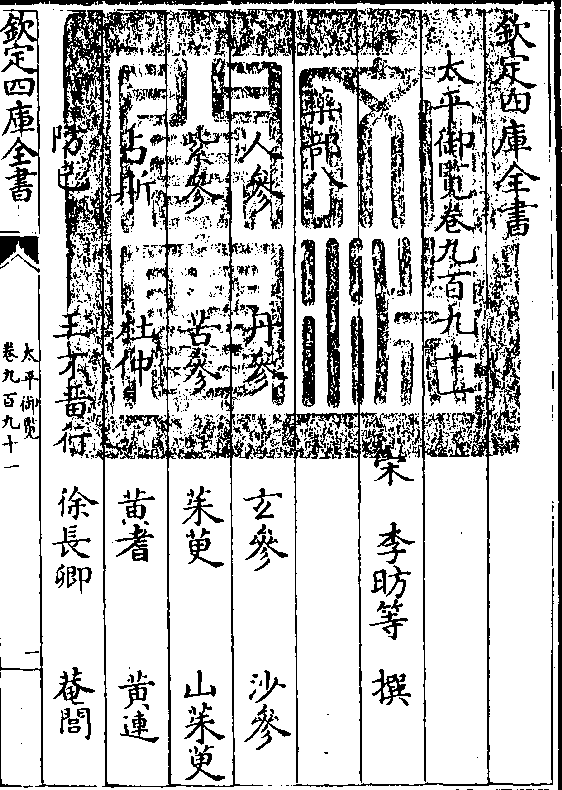 欽定四庫全書
太平御覽卷九百九十一
宋 李昉等 撰
藥部八
人參 丹參 玄參 沙參
紫參 苦參 茱萸 山茱萸
占斯 杜仲 黃耆 黃連
防已 王不留行 徐長卿 菴䕡
欽定四庫全書
太平御覽
卷九百九十一
一